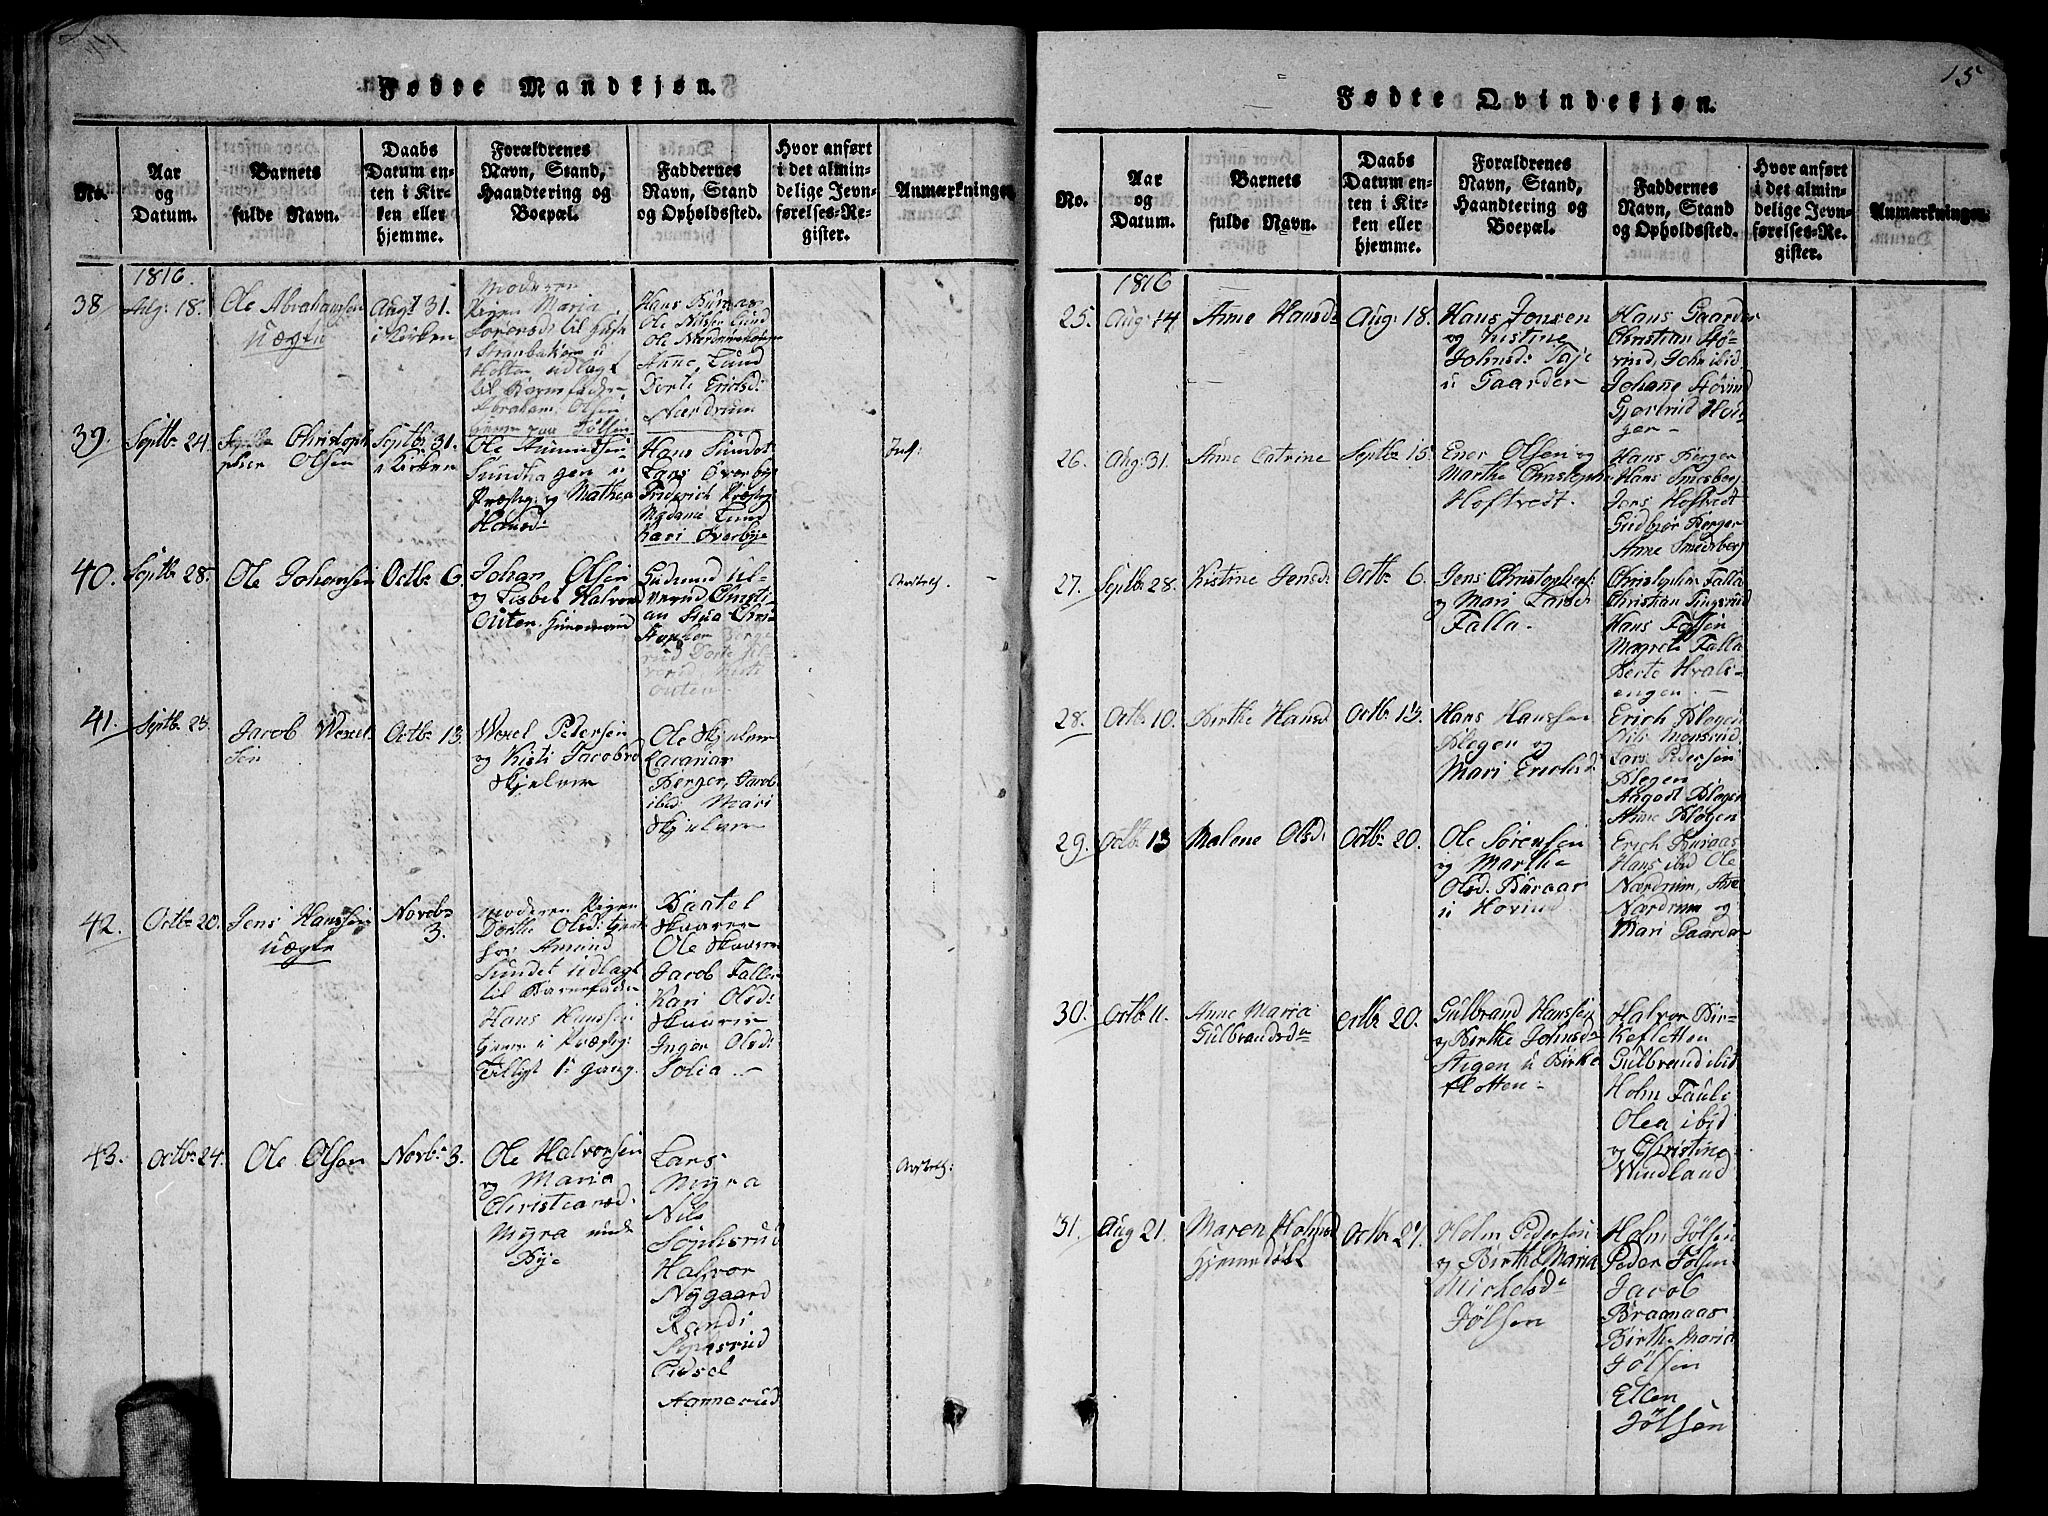 Fødte Mandkjøn.
No.
Aar
og
Datum.
Barnets
fulde Navn.
Daabs
Datum en-
ten i Kir-
ken eller
hjemme.
Forældrenes
Navn, Stand,
Haandtering og
Boepæl.
Faddernes
Navn, Stand
og Opholdssted.
Hvor anført
i det almin-
delige Jevn-
førelses-Re-
gister.
Anmærkninger
1816.
38
Aug: 18.
Ole Abrahamsen
uægte
Augt 31.
i Kirken
Moderen
Pigen Maria
til Huse
i
Holter udlagt
til Barnefader
Abraham Olsen
Hans Buraas
Ole Nilsen Lund
Ole
Anne Lund
Dorte Erichsd:
Nærdrum
39.
Septbr 24.
Christoph
pher Olsen
Septbr 31.
i Kirken
Ole Amundsen
Sundha gen u
Præstg: og Mathea
Hansd:
Hans Sundet
Lars Overbye
Friderich Præstg
Madame Lund
Kari Overbye
Inf:
40.
Septbr 28.
Ole Johansen
Octbr 6.
Johan Olsen
og Lisbet Halvord
Outen. Huusmand
Gudmund Ul-
verud Christi
an Stua Chri
stopher Berge
rud Dorte Ul-
verud,
Outen.
41.
Septbr 23.
Jacob Wexel
sen
Octbr 13.
Wexel Pedersen
og Kisti Jacobsd
Skjelver
Ole Skjelver
Zacarias
Berger, Jacob
ibid: Mari
Skjelver
42.
Octbr 20.
Jens Hanssen
uægte
Novbr
3.
Moderen Pigen
Dorthe Olsd:
hos Amund
Sundet udlagt
til Barnefader
Hans Hanssen
i Præstg:
1: gang.
Baatel
Skaarer
Ole Skaarer
Jacob Falla
Kari Olsd:
Skaarer
Inger Olsd:
Solia.
43.
Octbr 24.
Ole Olsen
Novbr 3.
Ole Halvorsen
og Maria
Christiansd:
Myra unde
Bye
Lars
Myra
Nils
Sophsrud
Halvor
Nygaard
Randi
Sophsrud
Pidsel
Aannerud
15
Fødte Qvindekjøn.
No.
Aar
og
Datum.
Barnets
fulde Navn.
Daabs
Datum en-
ten i Kir-
ken eller
hjemme.
Forældrenes
Navn, Stand,
Haandtering og
Boepæl.
Faddernes
Navn, Stand
og Opholdssted.
Hvor anført
i det almin-
delige Jevn-
førelses-Re-
gister.
Anmærkninger
1816
25.
Aug: 14
Anne Hansd:
Aug: 18.
Hans Jonsen
og Kistine
Johnsd:
u Gaarder
Hans Gaarder
Christian Hø-
vind, John ibid
Johane Høvind
Gjertrud
ger
26.
Aug: 31.
Anne Catrine
Septbr 15.
Ener Olsen og
Marthe Christophe
Hoftvedt.
Hans Berger
Hans Smedsberg
Jens Hoftvedt
Gudbjør Berger
Anne Smedsberg
27.
Septbr 28.
Kistine Jensd:
Octbr 6.
Jens Christophers:
og Mari Larsd
Falla.
Christopher Falla
Christian Tingsrud
Hans
Magrete Falla
Berte Hvals-
engen.
28.
Octbr 10.
Birthe Hansd
Octbr 13.
Hans Hanssen
Blegen og
Mari Erichsd
Erich Blegen
Nils Monsrud
Lars Pedersen
Blegen
Aagodt Blegen
Anne Blegen
29.
Octbr 13
Malene Olsd:
Octbr 20.
Ole Sørensen
og Marthe
Olsd: Buraas
u Hovind
Erich Buraas
Hans ibid Ole
Nærdrum,
Nærdrum og
Mari
30.
Octbr 11.
Anne Maria
Gulbrandsdr
Octbr 20.
Gulbrand Hanssen
og Birthe Johnsdr
Stigen u Birke
fletten
Halvor Bir-
kefletten
Gulbrand ibid
Holm
Olea ibid
og Christine
Windland
31.
Aug 21.
Maren Holmsd
hjemmedøbt
Octbr 27.
Holm Pedersen
og Birthe Maria
Michelsdr
Jølsen
Holm Jølsen
Peder Jølsen
Jacob
Braanaas
Birthe Maria
Jølsen
Ellen
Jølsen